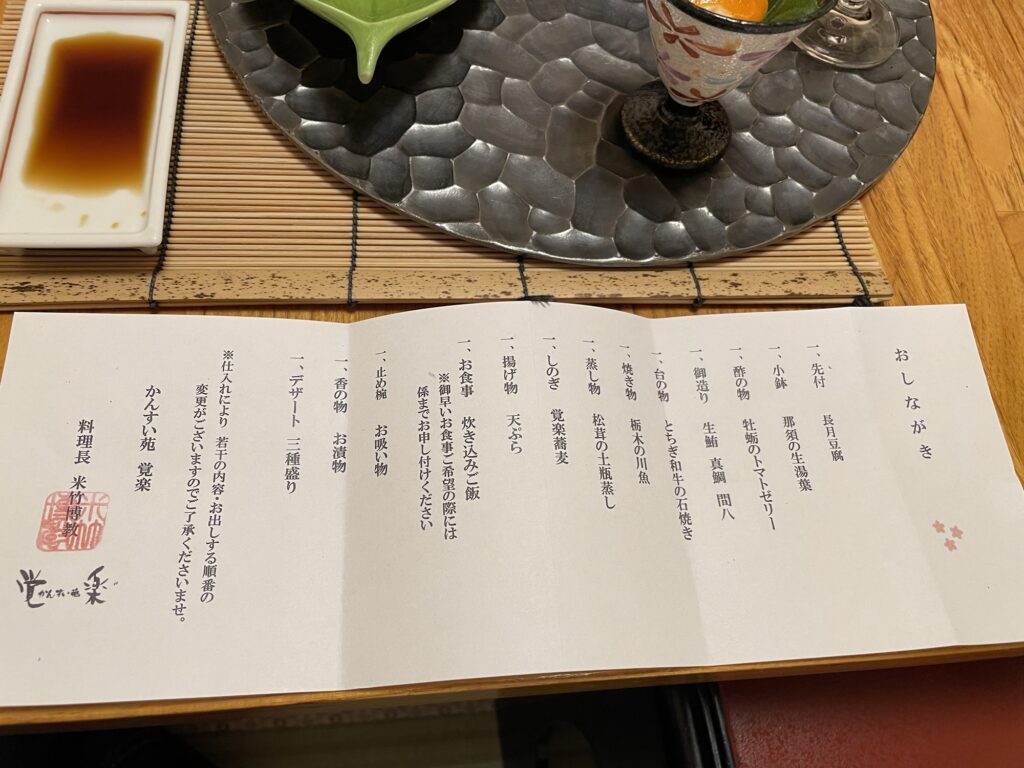 おしながき
一、先付　長月豆腐
一、小鉢　那須の生湯葉
一、酢の物　牡蛎のトマトゼリー
一、御造り　生鮪　真鯛　間八
一、台の物　とちぎ和牛の石焼き
一、焼き物　栃木の川魚
一、蒸し物　松茸の土瓶蒸し
一、しのぎ　覚楽蕎麦
一、揚げ物　天ぷら
一、お食事　炊き込みご飯
※御早いお食事ご希望の際には
係までお申し付けください
一、止め椀　お吸い物
一、香の物　お漬物
一、デザート　三種盛り
※仕入れにより　若干の内容・お出しする順番の
変更がございますのでご了承くださいませ。
かんすい苑　覚楽
料理長　米竹博教
覚楽
かんすい苑